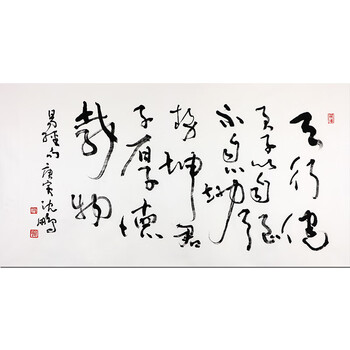 天行健
君子以自强
不息地
势坤君
子厚德
載物
易經句 庚寅 沈鵬